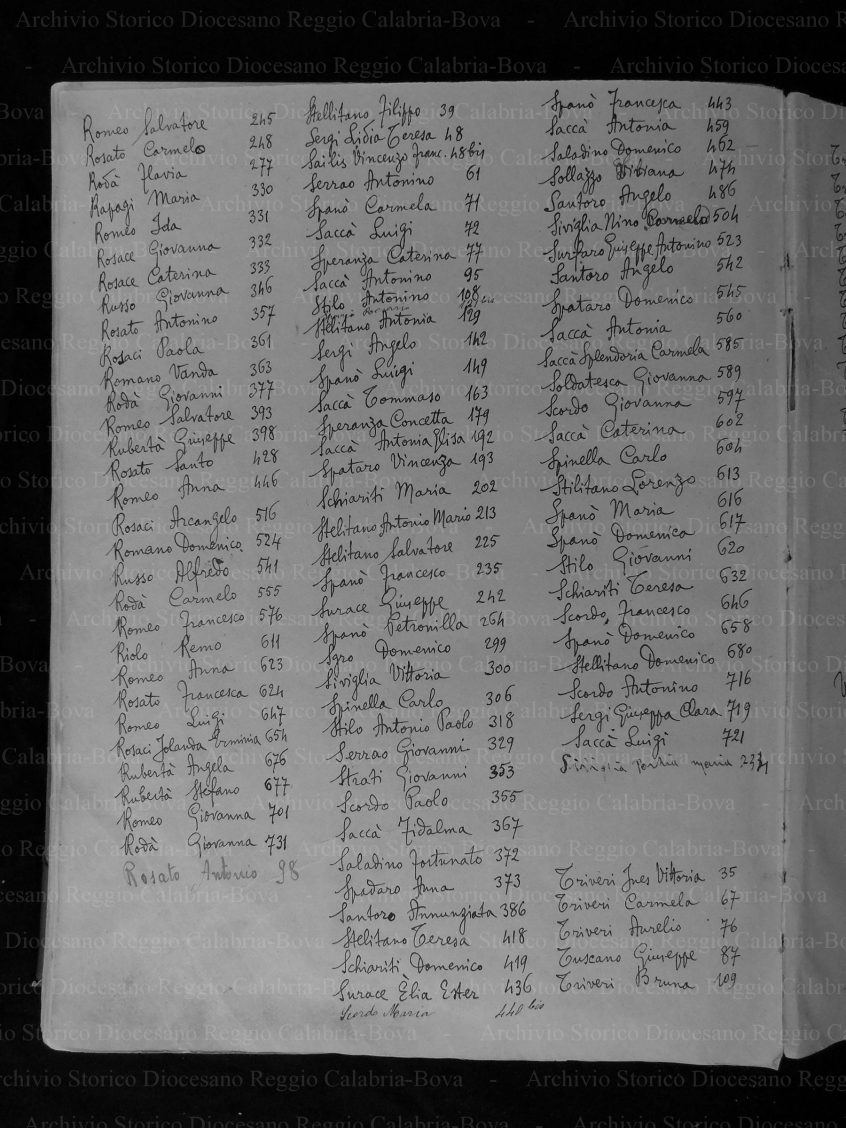 Romeo Salvatore 245
Rosato Carmelo 248
Rodà Flavia 277
Rapagi Maria 330
Romeo Ida 331
Rosace Giovanna 332
Rosace Caterina 333
Russo Giovanna 346
Rosato Antonino 357
Rosaci Paola 361
Romano Vanda 363
Rodà Giovanni 377
Romeo Salvatore 393
Rubertà Giuseppe 398
Rosato Santo 428
Romeo Anna 446
Rosaci Arcangelo 516
Romano Domenico 524
Russo Alfredo 541
Rodà Carmelo 555
Romeo Francesco 576
Riolo Remo 611
Romeo Anna 623
Rosato Francesca 624
Romeo Luigi 647
Rosaci Jolanda Erminia 654
Rubertà Angela 676
Rubertà Stefano 677
Romeo Giovanna 701
Rodà Giovanna 731
Rosato Antonio 98
Stellitano Filippo 39
Sergi Lidia Teresa 48
Sailis Vincenzo Franc. 48 bis
Serrao Antonino 61
Spanò Carmela 71
Saccà Luigi 72
Speranza Caterina 77
Saccà Antonino 95
Stilo Antonino 108
Stelitano Antonia 129
Sergi Angelo 142
Spanò Luigi 149
Saccà Tommaso 163
Speranza Concetta 179
Saccà Antonia Elisa 192
Spataro Vincenza 193
Schiariti Maria 202
Stelitano Antonio Mario 213
Stelitano Salvatore 225
Spanò Francesco 235
Surace Giuseppe 242
Spanò Petronilla 264
Sgro Domenico 299
Siviglia Vittoria 300
Spinella Carlo 306
Stilo Antonio Paolo 318
Serrao Giovanni 329
Strati Giovanni 353
Scordo Paolo 355
Saccà Fidalma 367
Saladino Fortunato 372
Spadaro Anna 373
Santoro Annunziata 386
Stelitano Teresa 418
Schiariti Domenico 419
Surace Èlia Ester 436
Scordo Maria 440 bis
Spanò Francesca 443
Saccà Antonia 459
Saladino Domenico 462
Sollazzo Bibiana 474
Santoro Angelo 486
Siviglia Nino Carmelo 504
Surfaro Giuseppe Antonino 523
Santoro Angelo 542
Spataro Domenico 545
Saccà Antonia 560
Saccà Splendoria Carmela 585
Soldatesca Giovanna 589
Scordo Giovanna 597
Saccà Caterina 602
Spinella Carlo 604
Stilitano Lorenzo 613
Spanò Maria 616
Spanò Domenica 617
Stilo Giovanni 620
Schiariti Teresa 632
Scordo Francesco 646
Spanò Domenico 658
Stellitano Domenico 680
Scordo Antonino 716
Sergi Giuseppa Clara 719
Saccà Luigi 721
Siviglia maria
Triveri Ines Vittoria 35
Triveri Carmela 67
Triveri Aurelio 76
Tuscano Giuseppe 87
Triveri Bruna 109